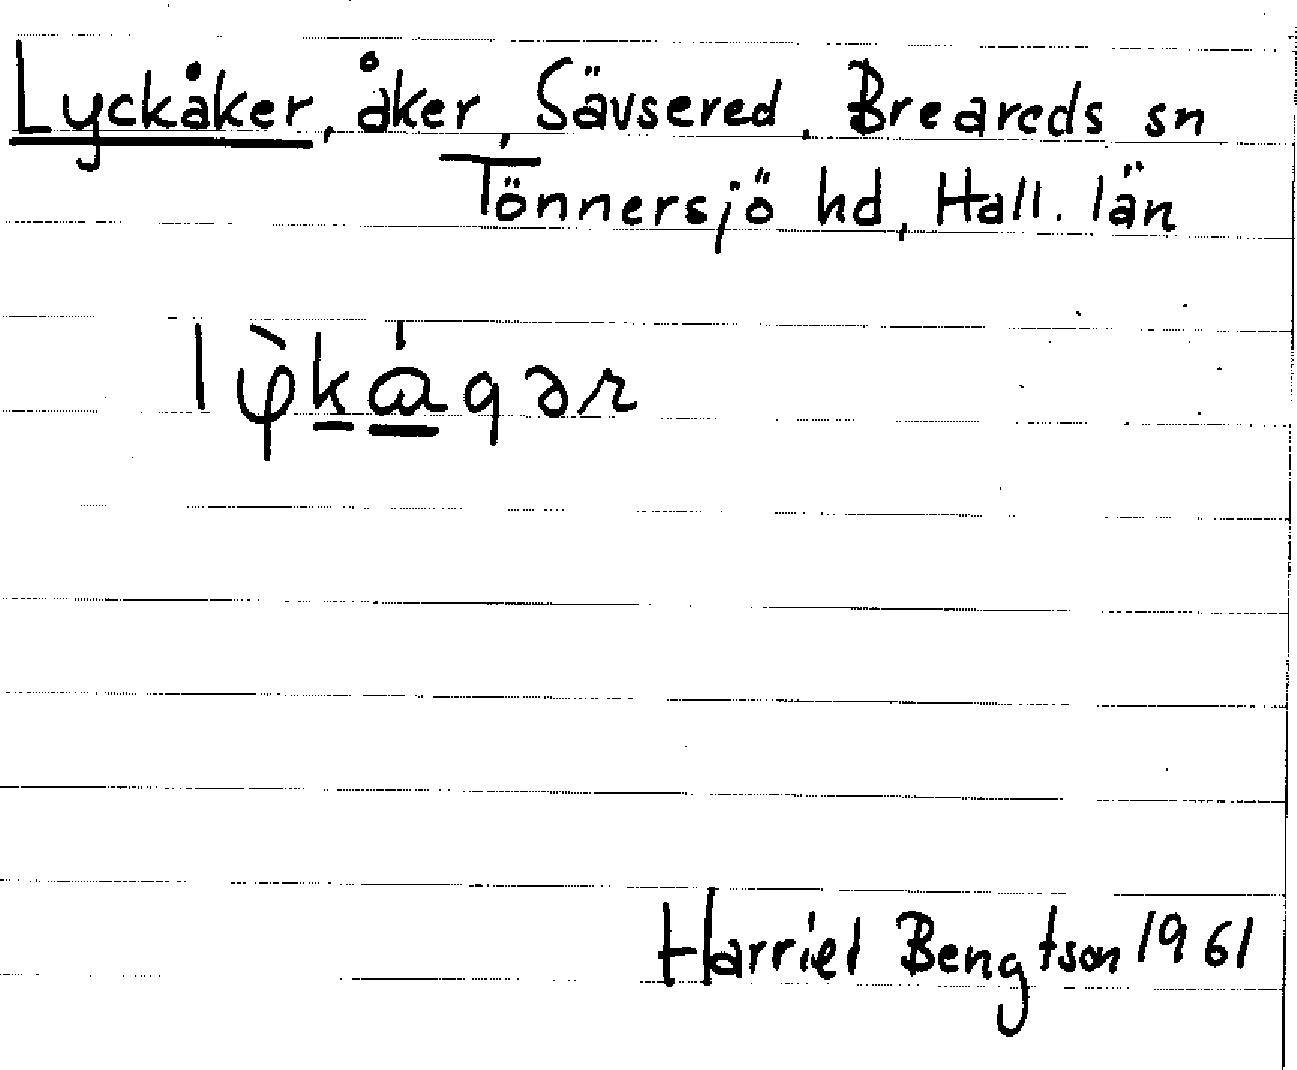 Lyckåker, åker, Sävsered, Breareds sn
Tönnersjö hd, Hall. län
lφ̀kɑ́qər
Harriet Bengtson 1961